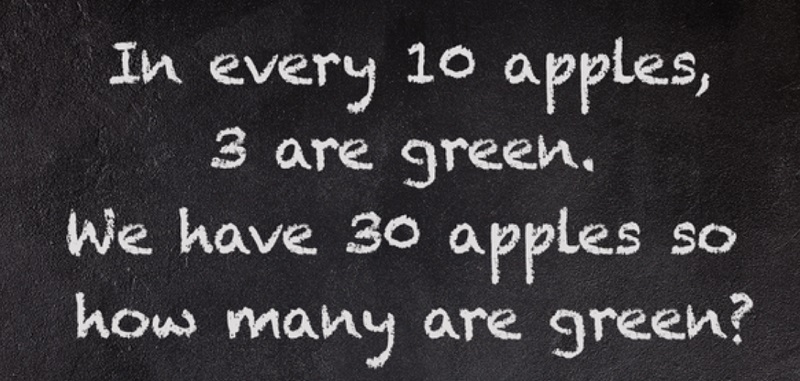 In every 10 apples,
3 are green.
We have 30 apples so
how many are green?